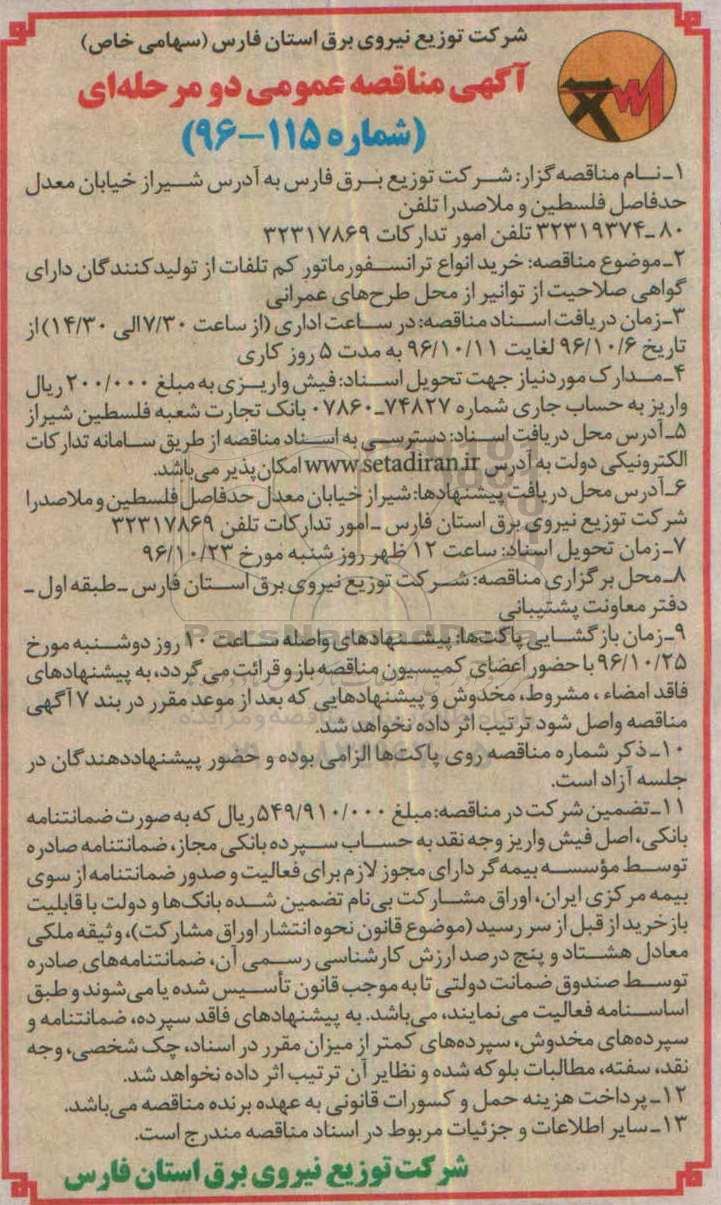 شرکت توزیع نیروی برق استان فارس (سهامی خاص)
آگهی مناقصه عمومی دو مرحله‌ای
(شماره ۱۱۵-۹۶)
۱ـ نـام مناقصه‌گزار: شـرکت توزیع بـرق فارس به آدرس شـیراز خیابان معدل
حدفاصل فلسطین و ملاصدرا تلفن
۸۰ـ۳۲۳۱۹۳۷۴ تلفن امور تدارکات ۳۲۳۱۷۸۶۹
۲ـ موضوع مناقصه: خرید انواع ترانسـفورماتور کم تلفات از تولیدکنندگان دارای
گواهی صلاحیت از توانیر از محل طرح‌های عمرانی
۳ـ زمان دریافت اسـناد مناقصه: در سـاعت اداری (از ساعت ۷/۳۰ الی ۱۴/۳۰) از
تاریخ ۹۶/۱۰/۶ لغایت ۹۶/۱۰/۱۱ به مدت ۵ روز کاری
۴ـ مـدارک موردنیاز جهت تحویل اسـناد: فیش واریـزی به مبلغ ۲۰۰/۰۰۰ ریال
واریز به حساب جاری شماره ۷۴۸۲۷ـ۰۷۸۶۰ بانک تجارت شعبه فلسطین شیراز
۵ـ آدرس محل دریافت اسـناد: دسترسـی به اسـناد مناقصه از طریق سـامانه تدارکات
الکترونیکی دولت به آدرس www.setadiran.ir امکان‌پذیر می‌باشد.
۶ـ آدرس محل دریافت پیشنهادها: شیراز خیابان معدل حدفاصل فلسطین و ملاصدرا
شرکت توزیع نیروی برق استان فارس ـ امور تدارکات تلفن ۳۲۳۱۷۸۶۹
۷ـ زمان تحویل اسناد: ساعت ۱۲ ظهر روز شنبه مورخ ۹۶/۱۰/۲۳
۸ـ محل برگزاری مناقصه: شـرکت توزیع نیروی برق اسـتان فارس ـ طبقه اول ـ
دفتر معاونت پشتیبانی
۹ـ زمان بازگشـایی پاکت‌ها: پیشـنهادهای واصله سـاعت ۱۰ روز دوشـنبه مورخ
۹۶/۱۰/۲۵ با حضور اعضای کمیسیون مناقصه باز و قرائت می‌گردد، به پیشنهادهای
فاقد امضاء ، مشروط، مخدوش و پیشنهادهایی که بعد از موعد مقرر در بند ۷ آگهی
مناقصه واصل شود ترتیب اثر داده نخواهد شد.
۱۰ـ ذکر شماره مناقصه روی پاکت‌ها الزامی بوده و حضور پیشنهاددهندگان در
جلسه آزاد است.
۱۱ـ تضمین شرکت در مناقصه: مبلغ ۵۴۹/۹۱۰/۰۰۰ ریال که به صورت ضمانتنامه
بانکی، اصل فیش واریز وجه نقد به حسـاب سـپرده بانکی مجاز، ضمانتنامه صادره
توسـط مؤسسـه بیمه‌گر دارای مجوز لازم برای فعالیت و صدور ضمانتنامه از سوی
بیمه مرکزی ایران، اوراق مشـارکت بی‌نام تضمین شـده بانک‌ها و دولت با قابلیت
بازخرید از قبل از سررسید (موضوع قانون نحوه انتشار اوراق مشارکت)، وثیقه ملکی
معادل هشـتاد و پنج درصد ارزش کارشناسی رسـمی آن، ضمانتنامه‌های صادره
توسط صندوق ضمانت دولتی تا به موجب قانون تأسیس شده یا می‌شوند و طبق
اساسـنامه فعالیت می‌نمایند، می‌باشد. به پیشنهادهای فاقد سپرده، ضمانتنامه و
سپرده‌های مخدوش، سپرده‌های کمتر از میزان مقرر در اسناد، چک شخصی، وجه
نقد، سفته، مطالبات بلوکه شده و نظایر آن ترتیب اثر داده نخواهد شد.
۱۲ـ پرداخت هزینه حمل و کسورات قانونی به عهده برنده مناقصه می‌باشد.
۱۳ـ سایر اطلاعات و جزئیات مربوط در اسناد مناقصه مندرج است.
شرکت توزیع نیروی برق استان فارس